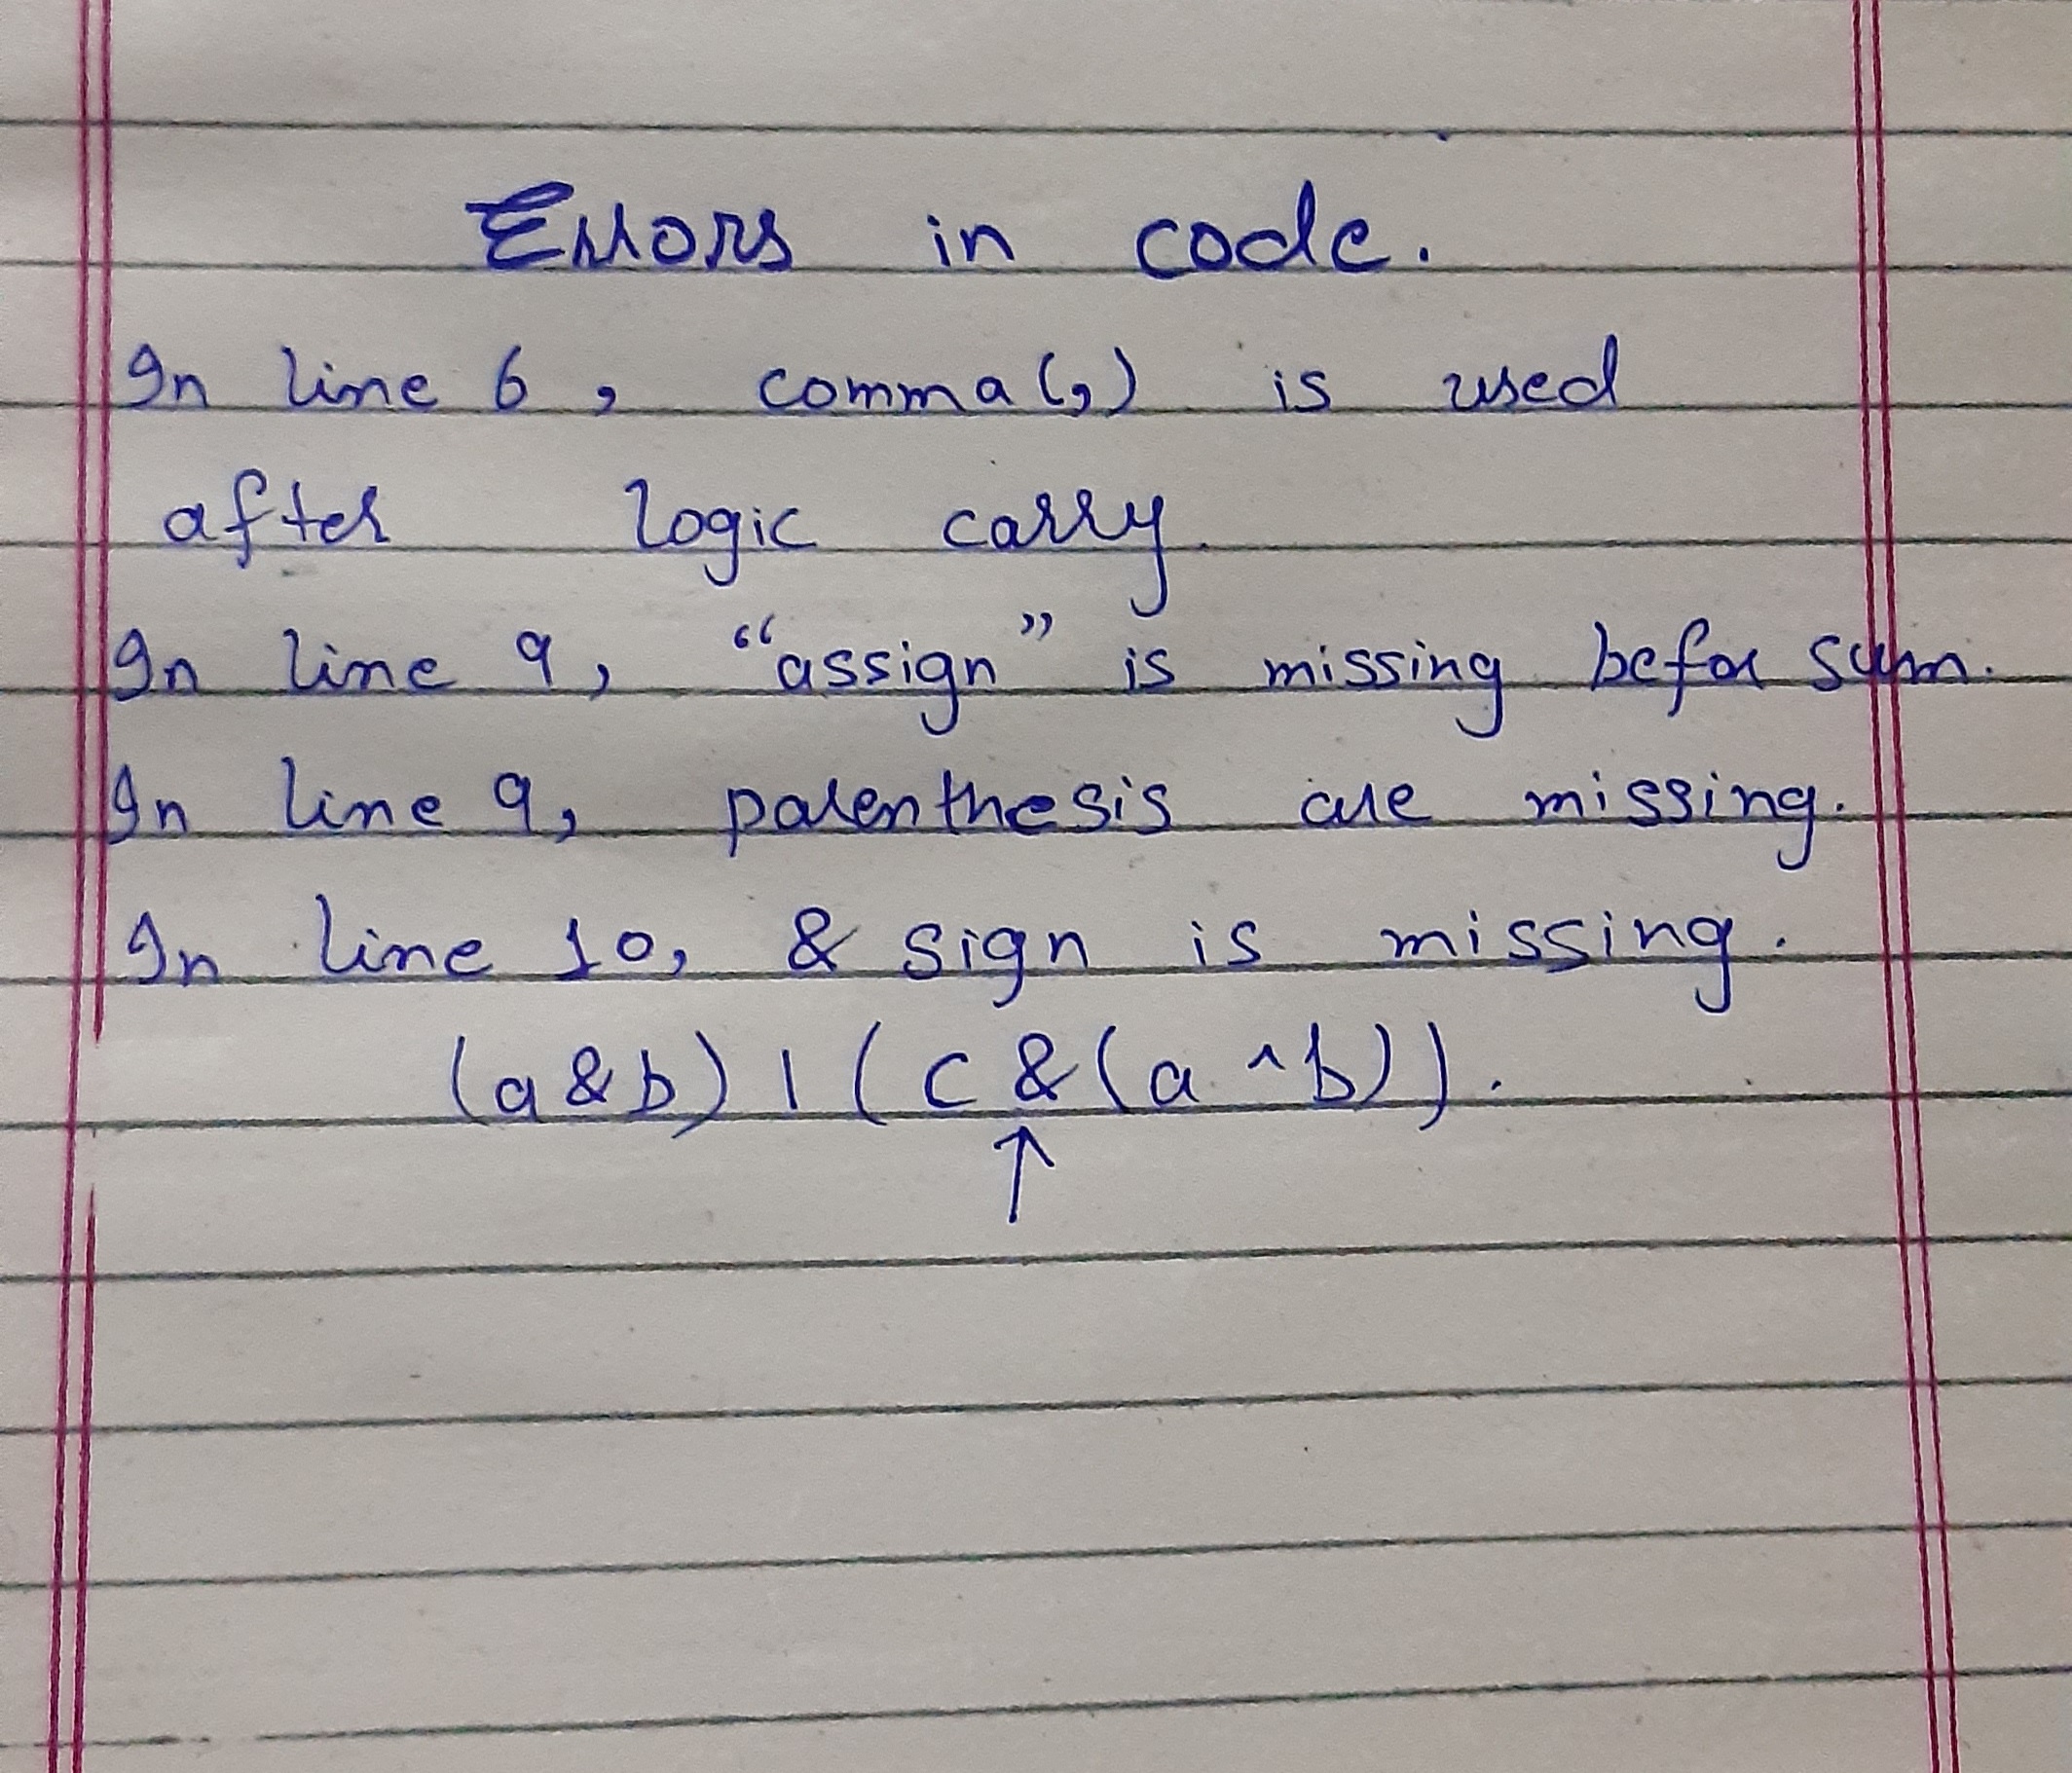 Errors in code.
In line 6, comma(,) is used
after logic carry.
In line 9, “assign” is missing befor sum.
In line 9, parenthesis are missing.
In line 10, & sign is missing.
(a&b) | (c&(a^b)).
↑